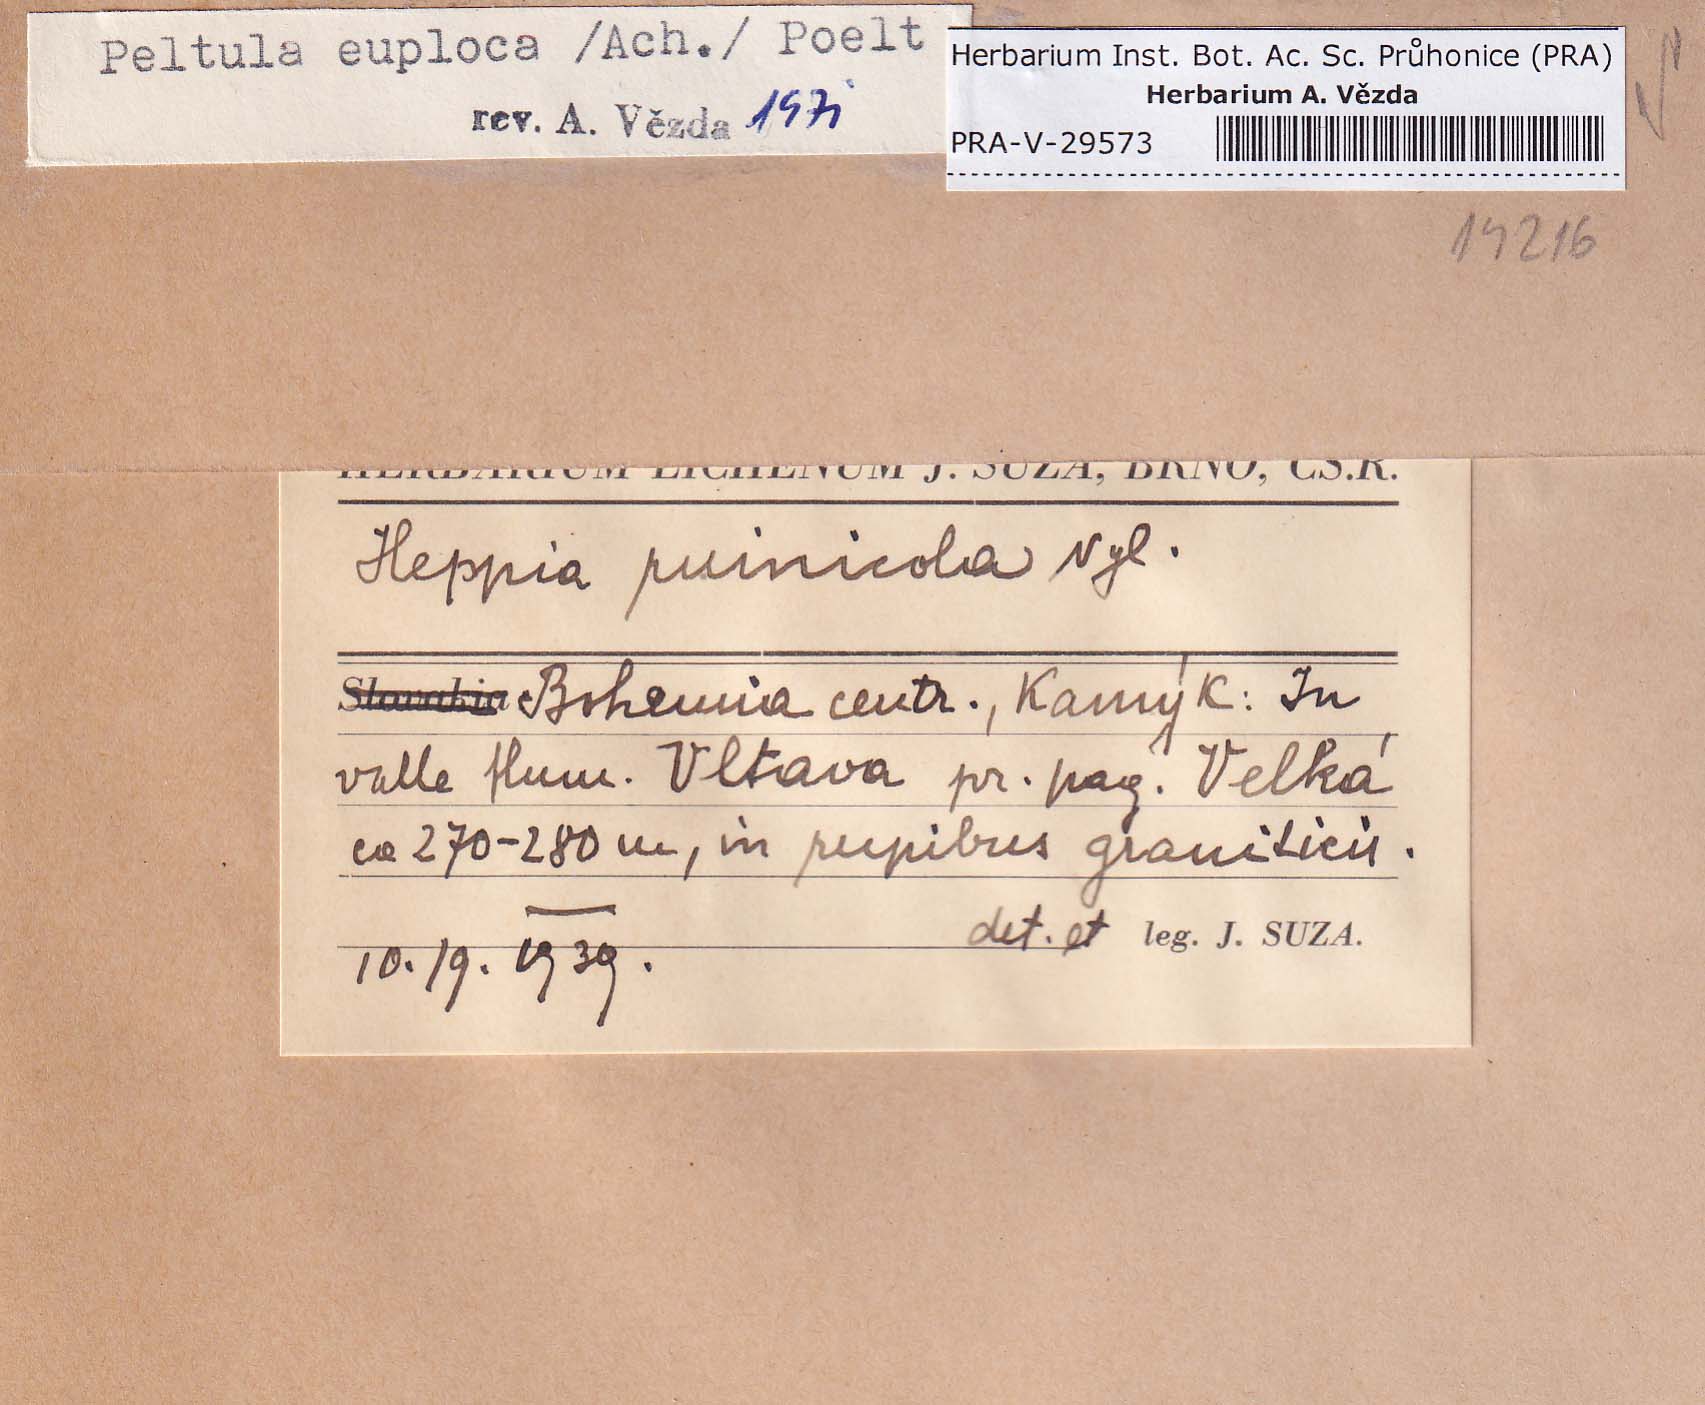 Peltula euploca /Ach./ Poelt
rev. A. Vězda 1971
Herbarium Inst. Bot. Ac. Sc. Průhonice (PRA)
Herbarium A. Vězda
PRA-V-29573
19216
HERBARIUM LICHENUM J. SUZA, BRNO, ČS.R.
Heppia ruinicola Nyl.
Slovakia Bohemia centr., Kamýk: In
valle flum. Vltava pr. pag. Velká
ca 270-280 m, in rupibus graniticis.
10./9. 1939.
det. et leg. J. SUZA.